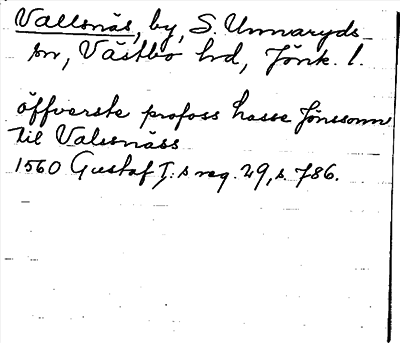 Vallsnäs, by, S. Unnaryds
sn, Västbo hd, Jönk. l.
öffverste profoss hasse Jönssonn
til Valssnäss
1560 Gustaf I:s reg. 29, s. 786.